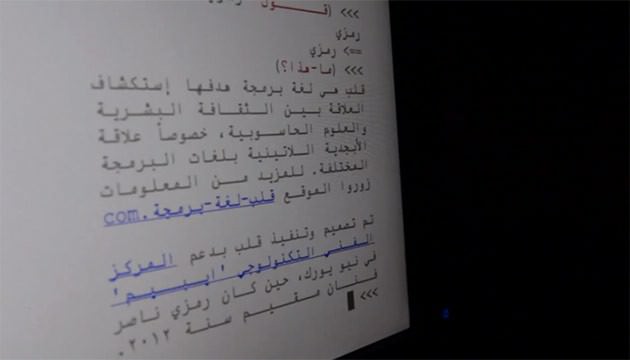 >>> (قول
رمزي
==> رمزي
>>> (ما-هذا؟)
قلب هي لغة برمجة هدفها إستكشاف
العلاقة بين الثقافة البشرية
والعلوم الحاسوبية، خصوصاً علاقة
الأبجدية اللاتينية بلغات البرمجة
المختلفة. للمزيد من المعلومات
زوروا الموقع قلب-لغة-برمجة.com
تم تصميم وتنفيذ قلب بدعم المركز
الفني التكنولوجي 'ايبيم'
في نيو يورك، حين كان رمزي ناصر
فنان مقيم سنة ٢٠١٢.
>>>